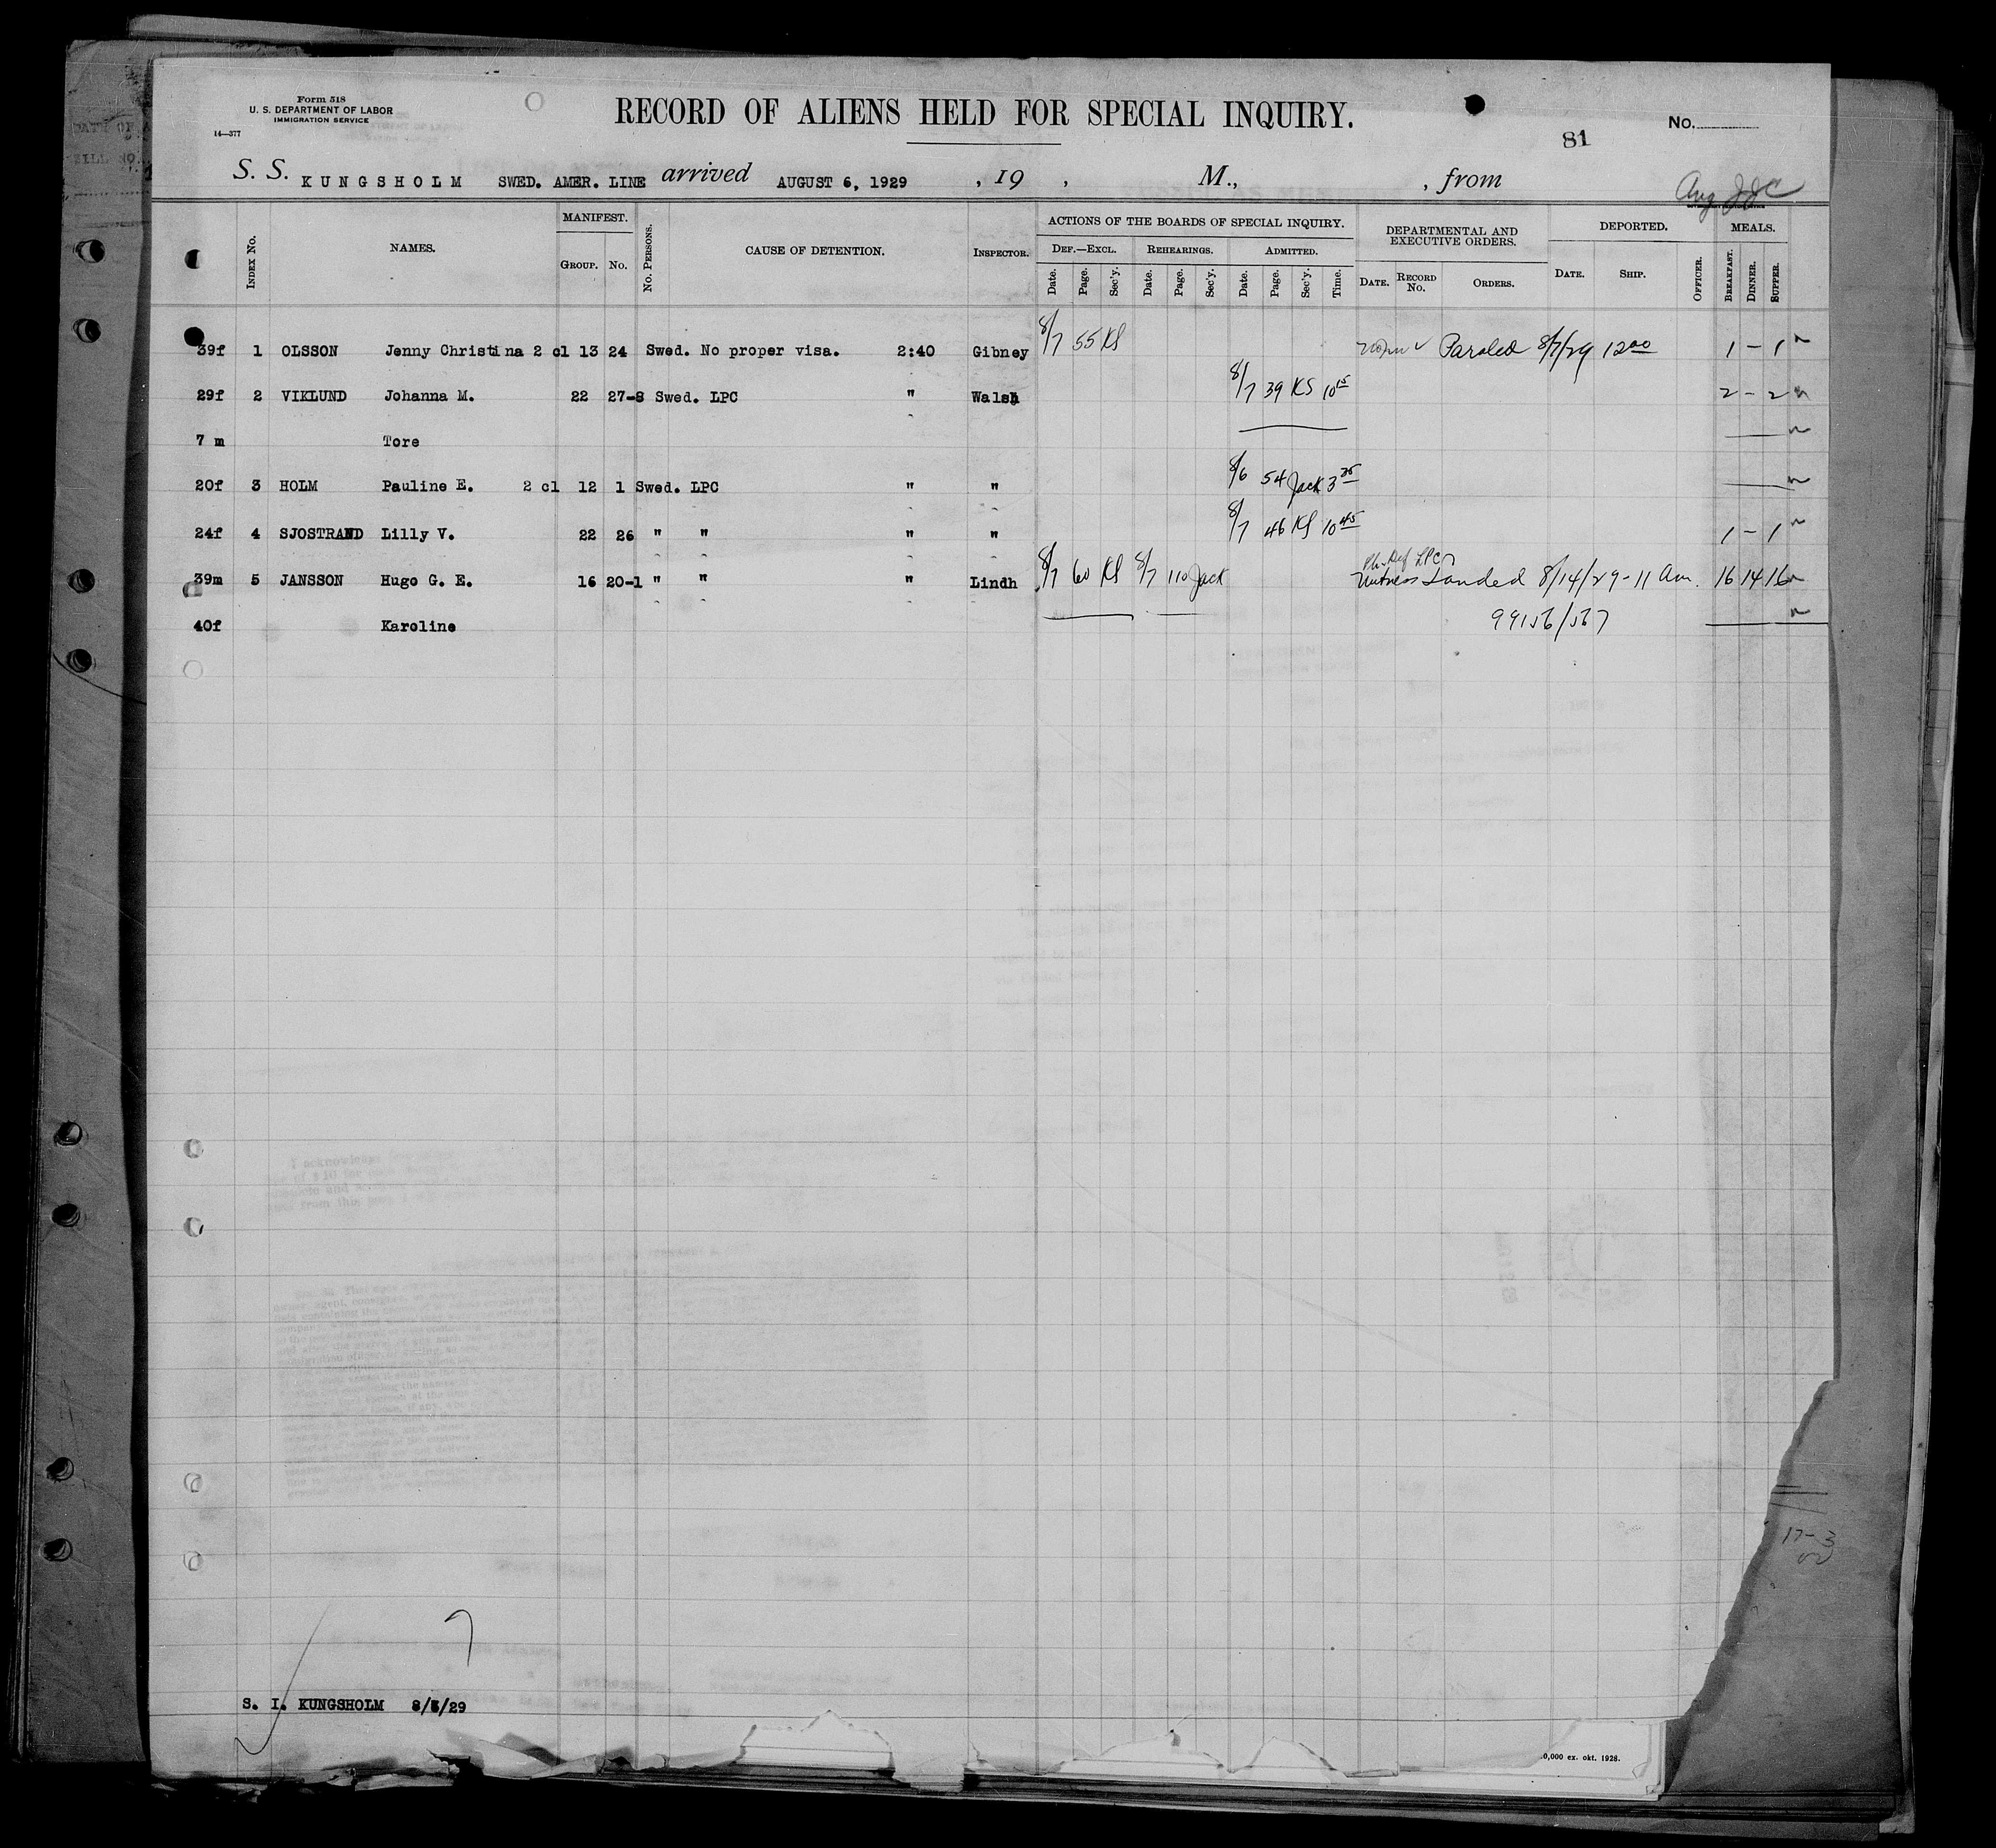 Form 518
U. S. DEPARTMENT OF LABOR
IMMIGRATION SERVICE
14—377
RECORD OF ALIENS HELD FOR SPECIAL INQUIRY.
81
No.
S. S. KUNGSHOLM SWED. AMER. LINE arrived AUGUST 6, 1929 , 19 , M., , from
Aug
INDEX No. NAMES. MANIFEST. GROUP. No. No. PERSONS. CAUSE OF DETENTION. INSPECTOR.
ACTIONS OF THE BOARDS OF SPECIAL INQUIRY.
DEF.—EXCL. REHEARINGS. ADMITTED.
Date. Page. Sec'y. Date. Page. Sec'y. Date. Page. Sec'y. Time.
DEPARTMENTAL AND EXECUTIVE ORDERS.
DATE. RECORD No. ORDERS.
DEPORTED.
DATE. SHIP. OFFICER.
MEALS.
BREAKFAST. DINNER. SUPPER.
39f 1 OLSSON Jenny Christina 2 cl 13 24 Swed. No proper visa. 2:40 Gibney 8/7 55 KS Paroled 8/7/29 12 00 1 - 1
29f 2 VIKLUND Johanna M. 22 27-8 Swed. LPC " Walsh 8/7 39 KS 10 15 2 - 2
7 m Tore
20f 3 HOLM Pauline E. 2 cl 12 1 Swed. LPC " " 8/6 54 Jack 3 35
24f 4 SJOSTRAND Lilly V. 22 26 " " " " 8/7 46 KS 10 45 1 - 1
39m 5 JANSSON Hugo G. E. 16 20-1 " " " Lindh 8/7 60 KS 8/7 110 Jack Landed 8/14/29 - 11 am. 16 14 16
40f Karoline 99156/567
17-3
S. I. KUNGSHOLM 8/6/29
0,000 ex. okt. 1928.